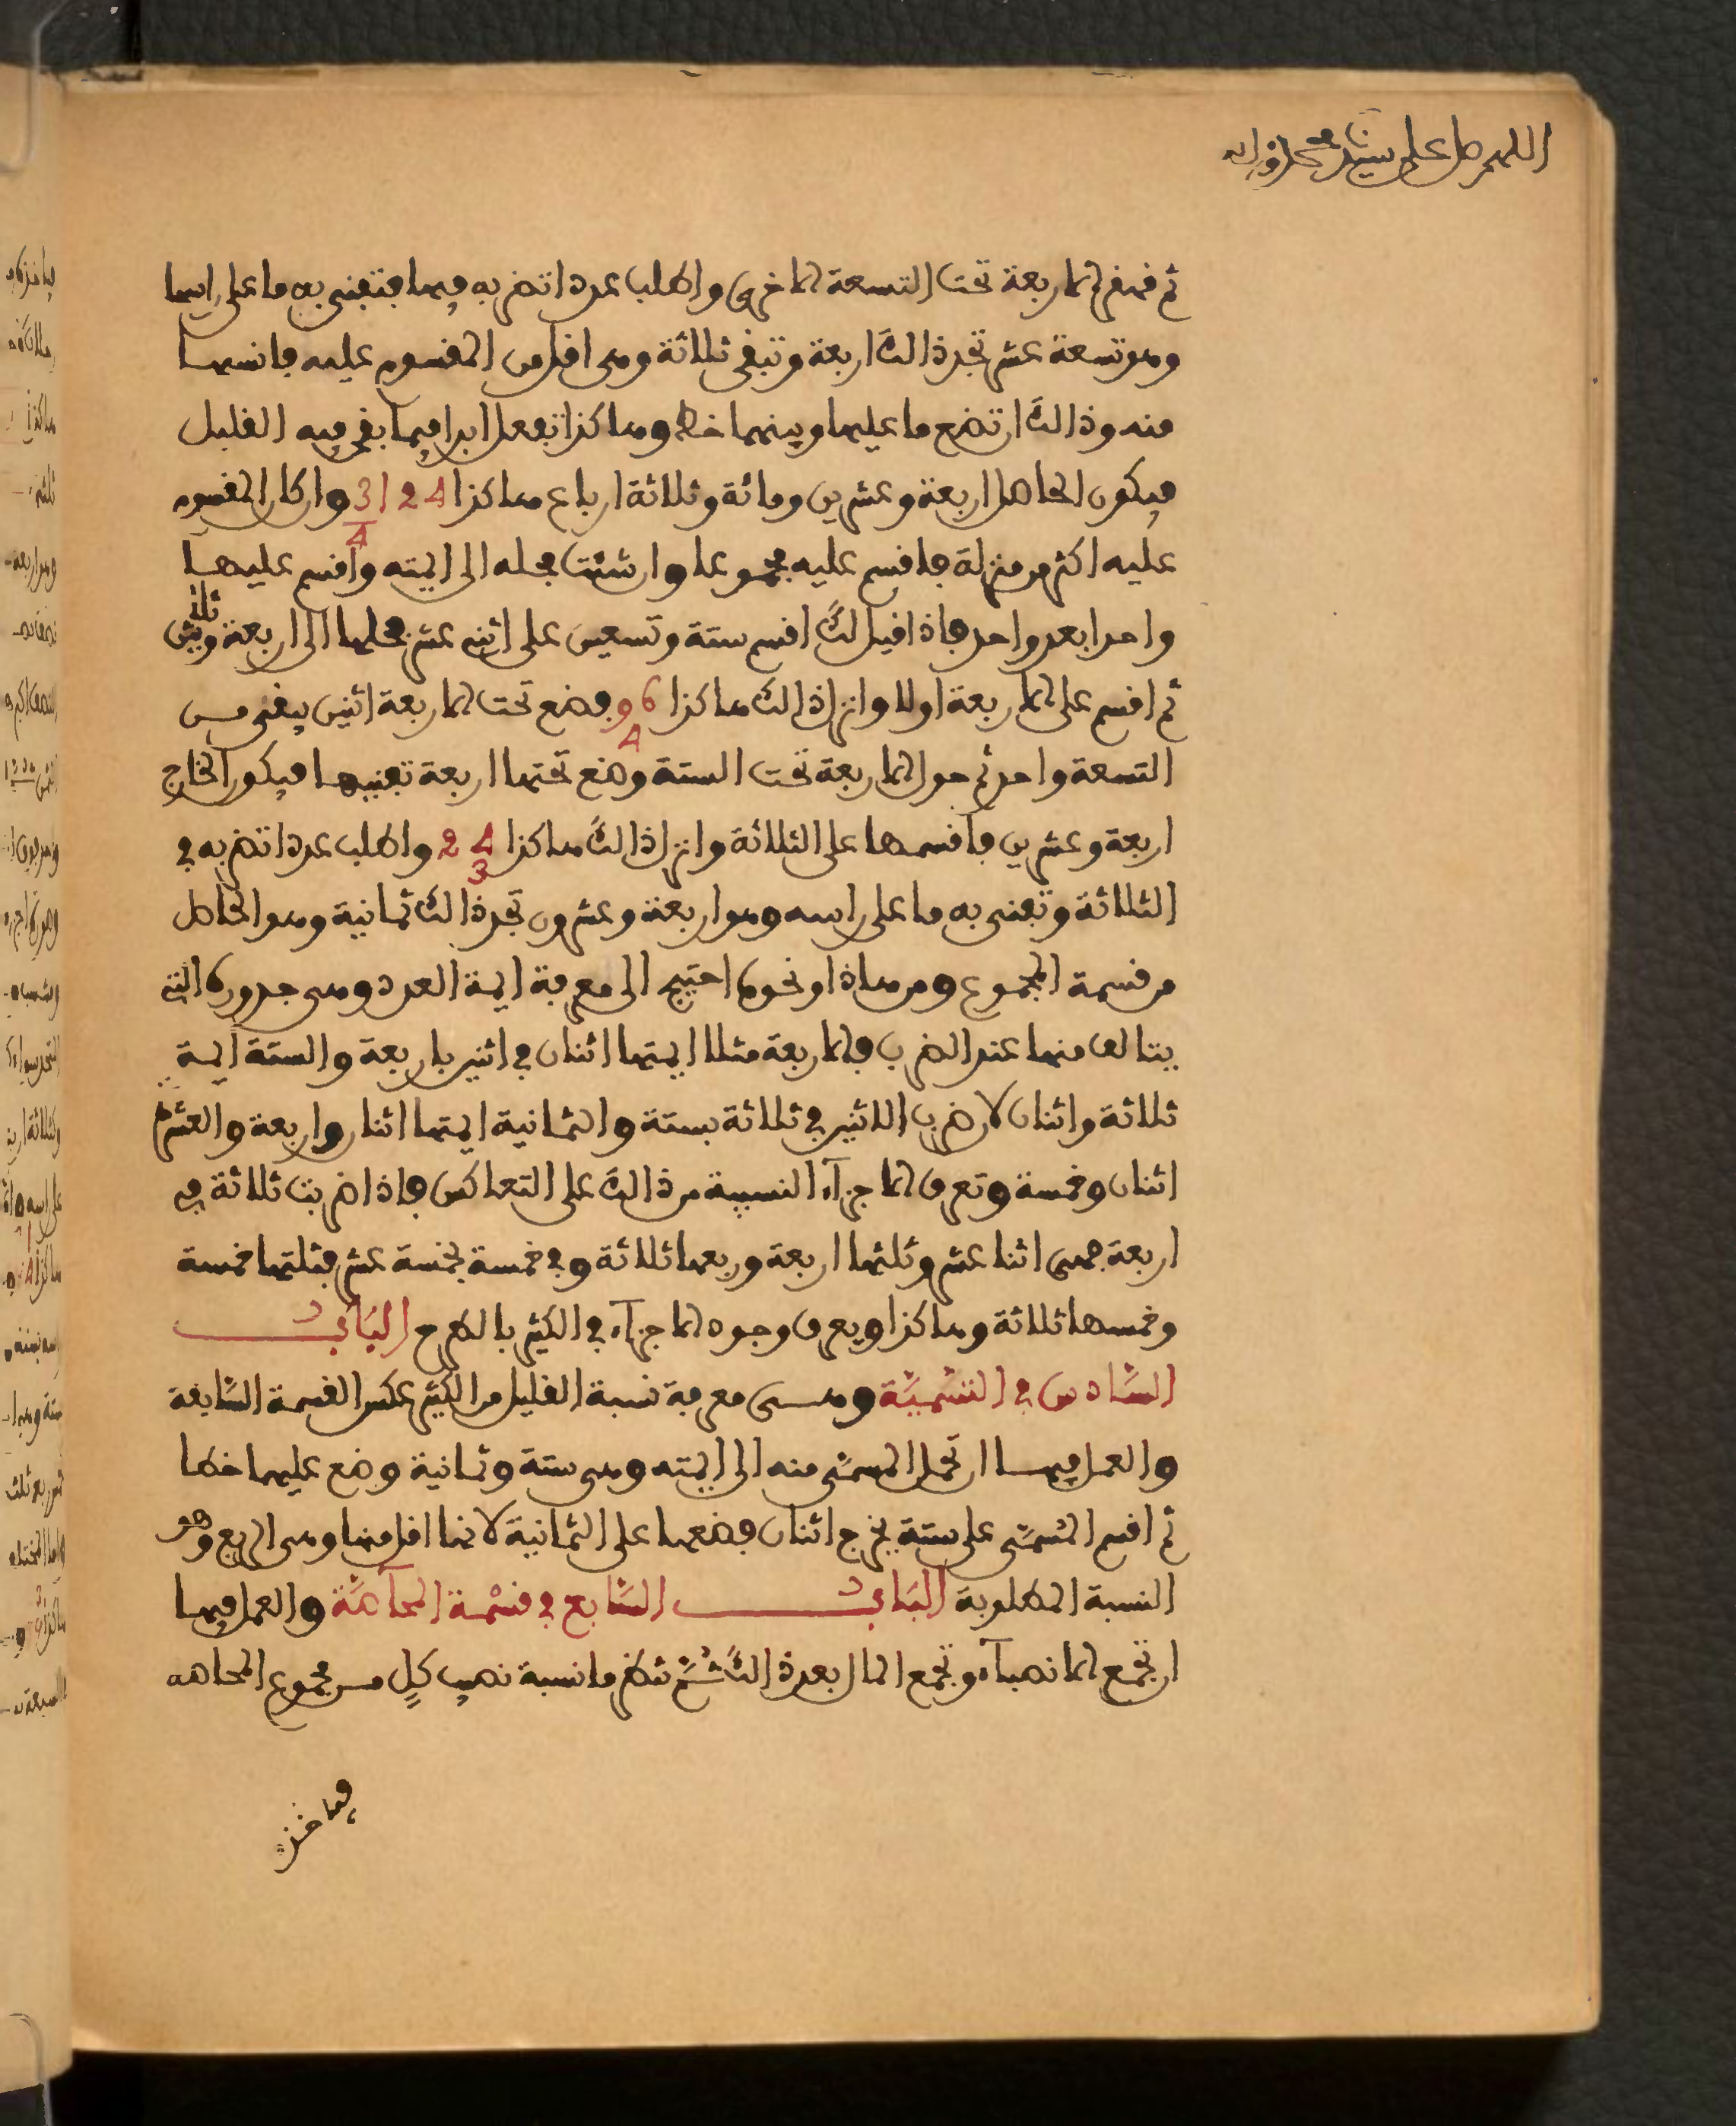 اللهم صل على سيدنا محمد وءاله
ثم قهقر الاربعة تحت التسعة الاخرى واطلب عددا تضربه فيها فتفنى به ما على رأسها
وهو تسعة عشر تجد ذالك اربعة وتبقى ثلاثة وهى اقل من المقسوم عليه فانسبها
منه وذالك ان تضع ما عليها وبينهما خط وهاكذا تفعل ابدا فيما بقى فيه القليل
فيكون الحاصل اربعة وعشرين ومائة وثلاثة ارباع هاكذا 124 3/4 وان كان المقسوم
عليه اكثر من منزلة فاقسم عليه مجموعا وان شئت فحله الى ايمته واقسم عليها
واحدا بعد واحد فاذا قيل لك اقسم ستة وتسعين على اثنى عشر فحلها الى اربعة وثلاثة
ثم اقسم على الاربعة اولا وانزل ذالك هاكذا 96 4 فضع تحت الاربعة اثنين يبقى من
التسعة واحد ثم حول الاربعة تحت الستة وضع تحتها اربعة تفنيها فيكون الخارج
اربعة وعشرين فاقسمها على الثلاثة وانزل ذالك هاكذا 24 3 واطلب عددا تضربه في
الثلاثة وتفنى به ما على راسه وهو اربعة وعشرون تجد ذالك ثمانية وهو الحاصل
من قسمة المجموع ومن هاذا ونحوه احتيج الى معرفة ايمة العدد وهى جدوره التي
يتالف منها عند الضرب فالاربعة مثلا ايمتها اثنان في اثنين باربعة والستة ايمة
ثلاثة واثنان لان ضرب الاثنين في ثلاثة بستة والثمانية ايمتها اثنان واربعة والعشرة
اثنان وخمسة وتعرف الاجزاء النسبية من ذالك على التعاكس فاذا ضربت ثلاثة في
اربعة فهى اثنا عشر وثلثها اربعة وربعها ثلاثة وفي خمسة بخمسة عشر فثلثها خمسة
وخمسها ثلاثة وهاكذا ويعرف وجوه الاجزاء في الكثير بالطرح الباب
السادس في التسمية وهى معرفة نسبة القليل من الكثير عكس القسمة السابقة
والعمل فيها ان تحل المسمى منه الى ايمته وهى ستة وثمانية وضع عليهما خطا
ثم اقسم المسمى على ستة يخرج اثنان فضعها على الثمانية لانها اقل منها وهى الربع وهو
النسبة المطلوبة الباب السابع في قسمة المحاصة والعمل فيها
ان تجمع الانصباء وتجمع المال بعد ذالك ثم تنظر ما نسبة نصيب كل من مجموع المحاصه
فما خذه